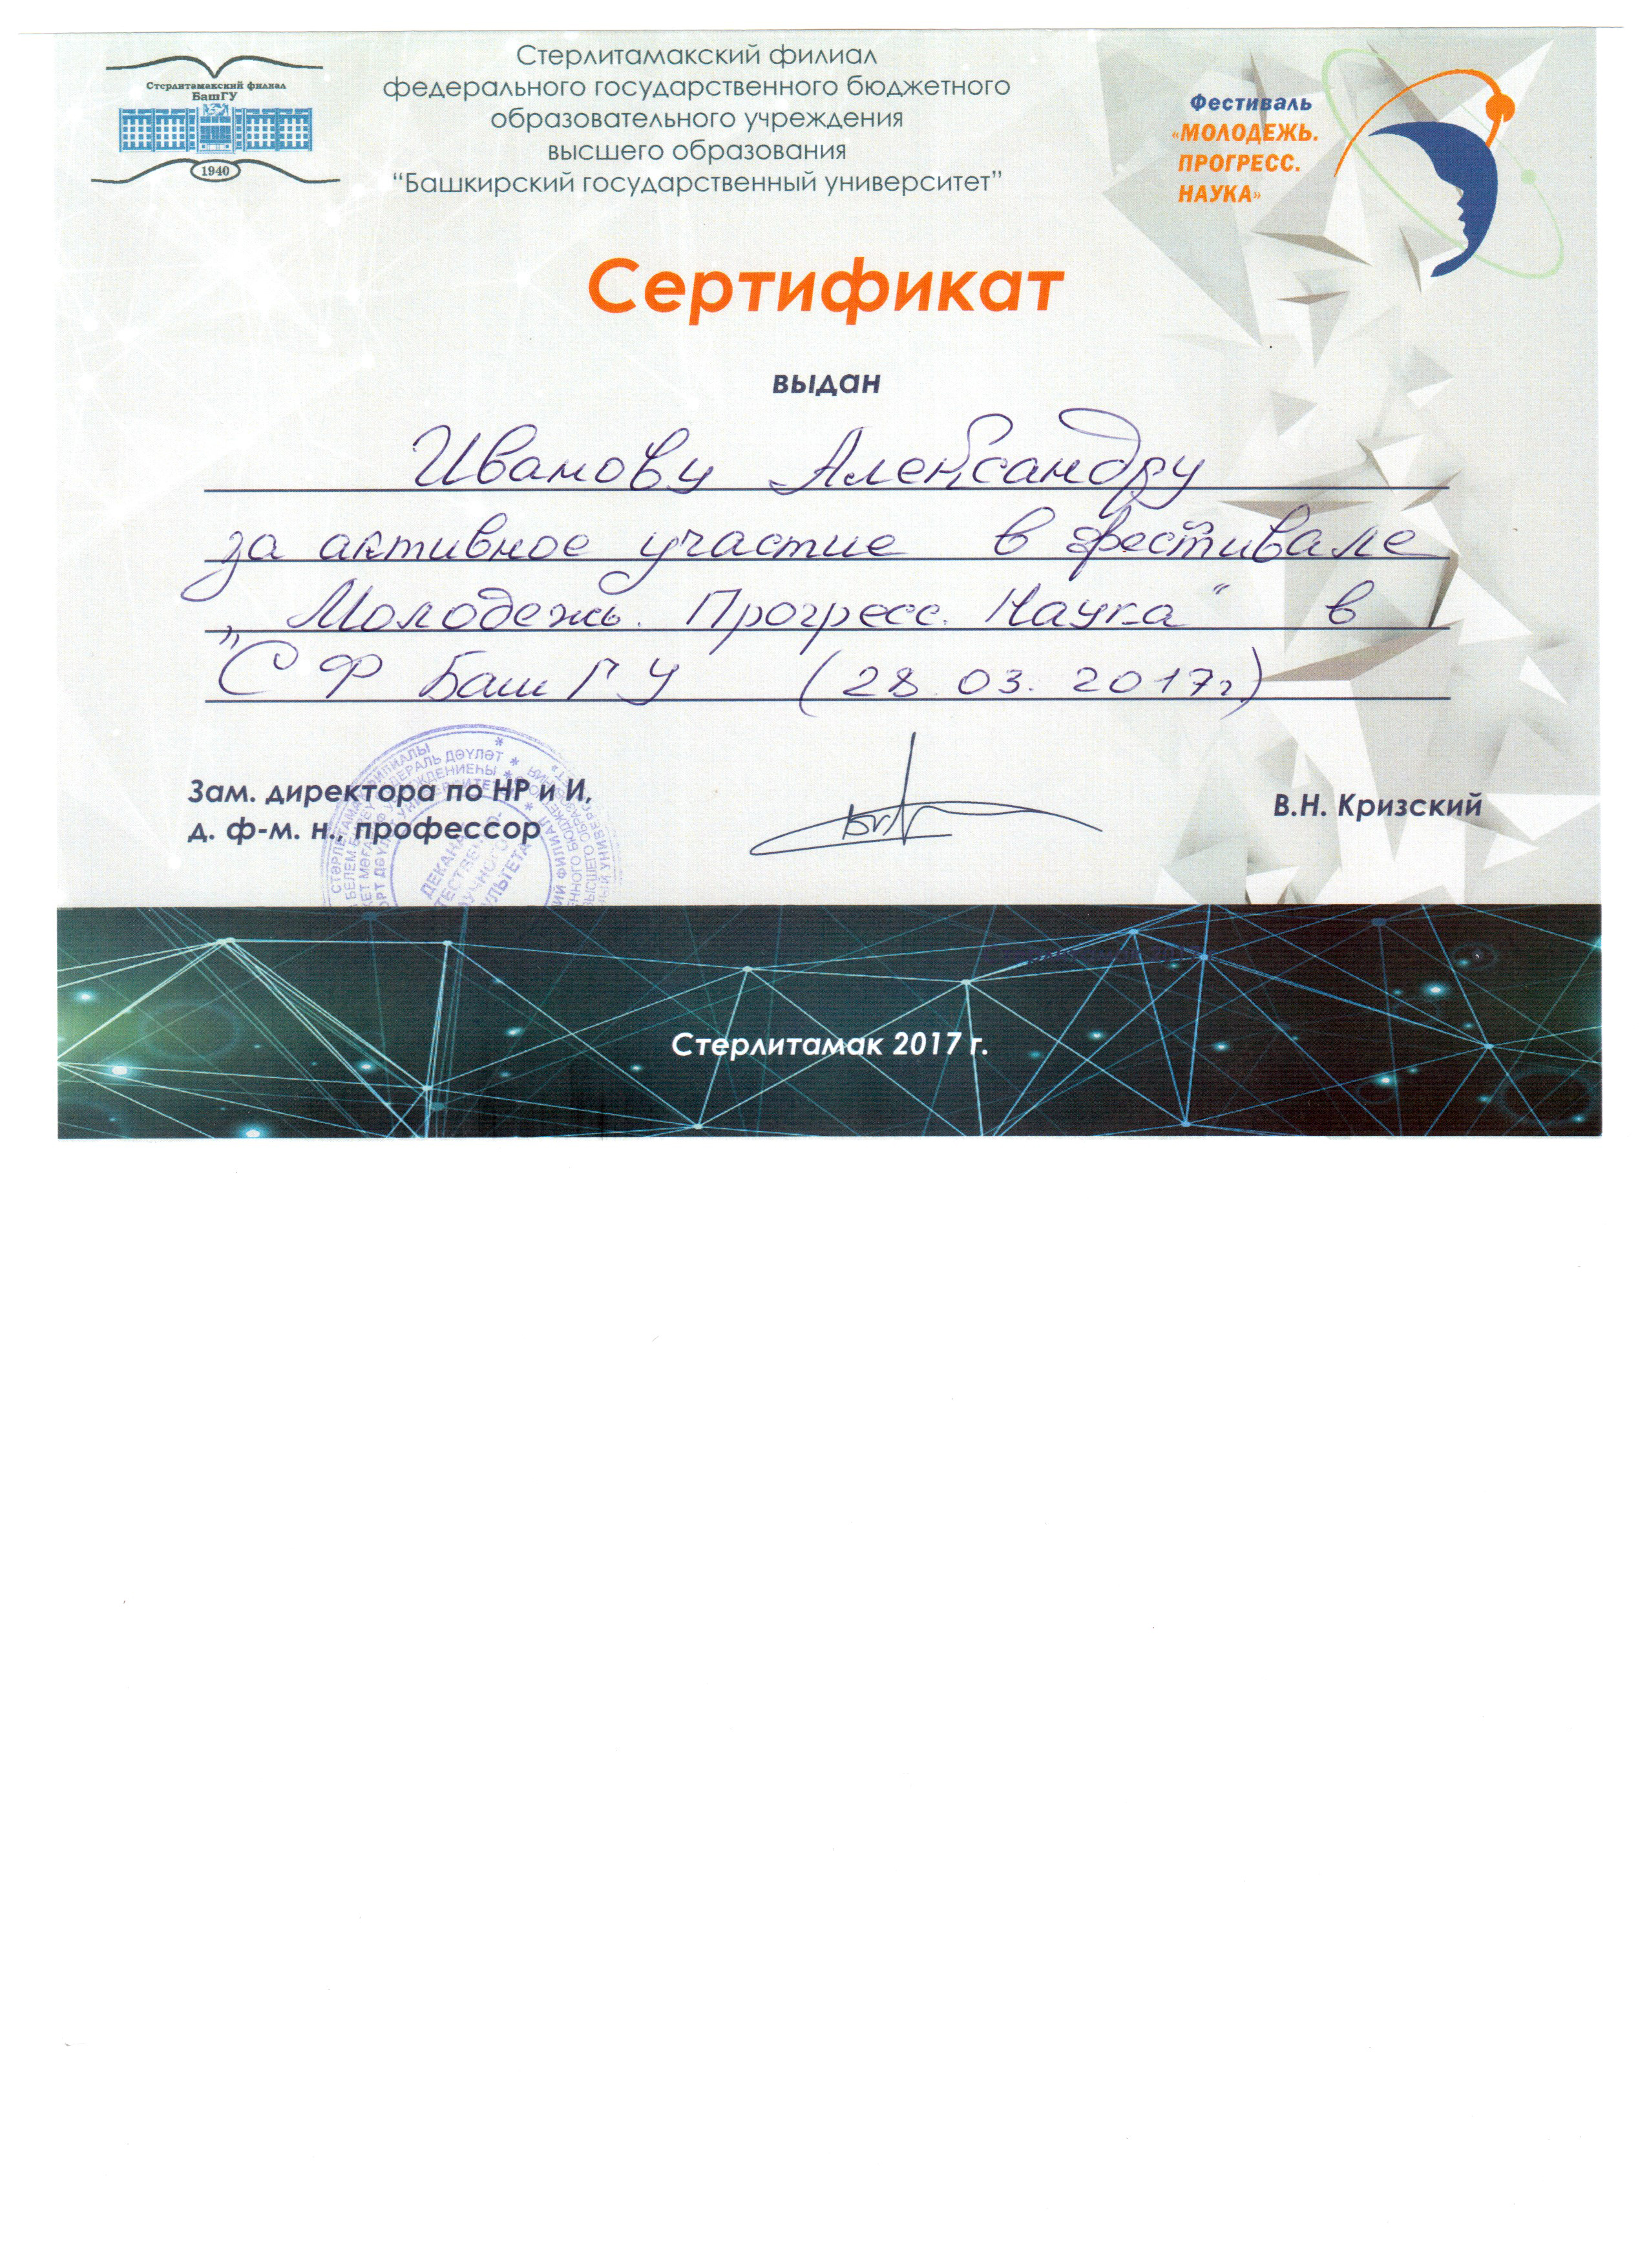 Стерлитамакский филиал
БашГУ
1940
Стерлитамакский филиал
федерального государственного бюджетного
образовательного учреждения
высшего образования
“Башкирский государственный университет”
Фестиваль
«МОЛОДЕЖЬ.
ПРОГРЕСС.
НАУКА»
Сертификат
выдан
Иванову Александру
за активное участие в фестивале
„Молодежь. Прогресс. Наука“ в
СФ БашГУ (28.03.2017г)
Зам. директора по НР и И,
д. ф-м. н., профессор
В.Н. Кризский
Стерлитамак 2017 г.